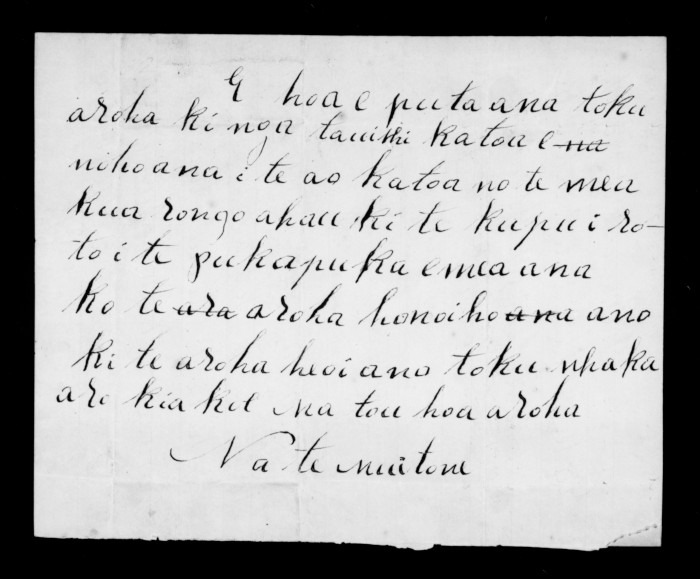 E hoa e puta ana toku
aroha ki nga tauiwhi katoa e na
noho ana i te ao katoa no te mea
kua rongo ahau ki te kupu i ro-
to i te pukapuka e mea ana
ko te ara aroha honoiho ana ano
ki te aroha heoi ano toku whaka
aro kia koe na tou hoa aroha
Na te